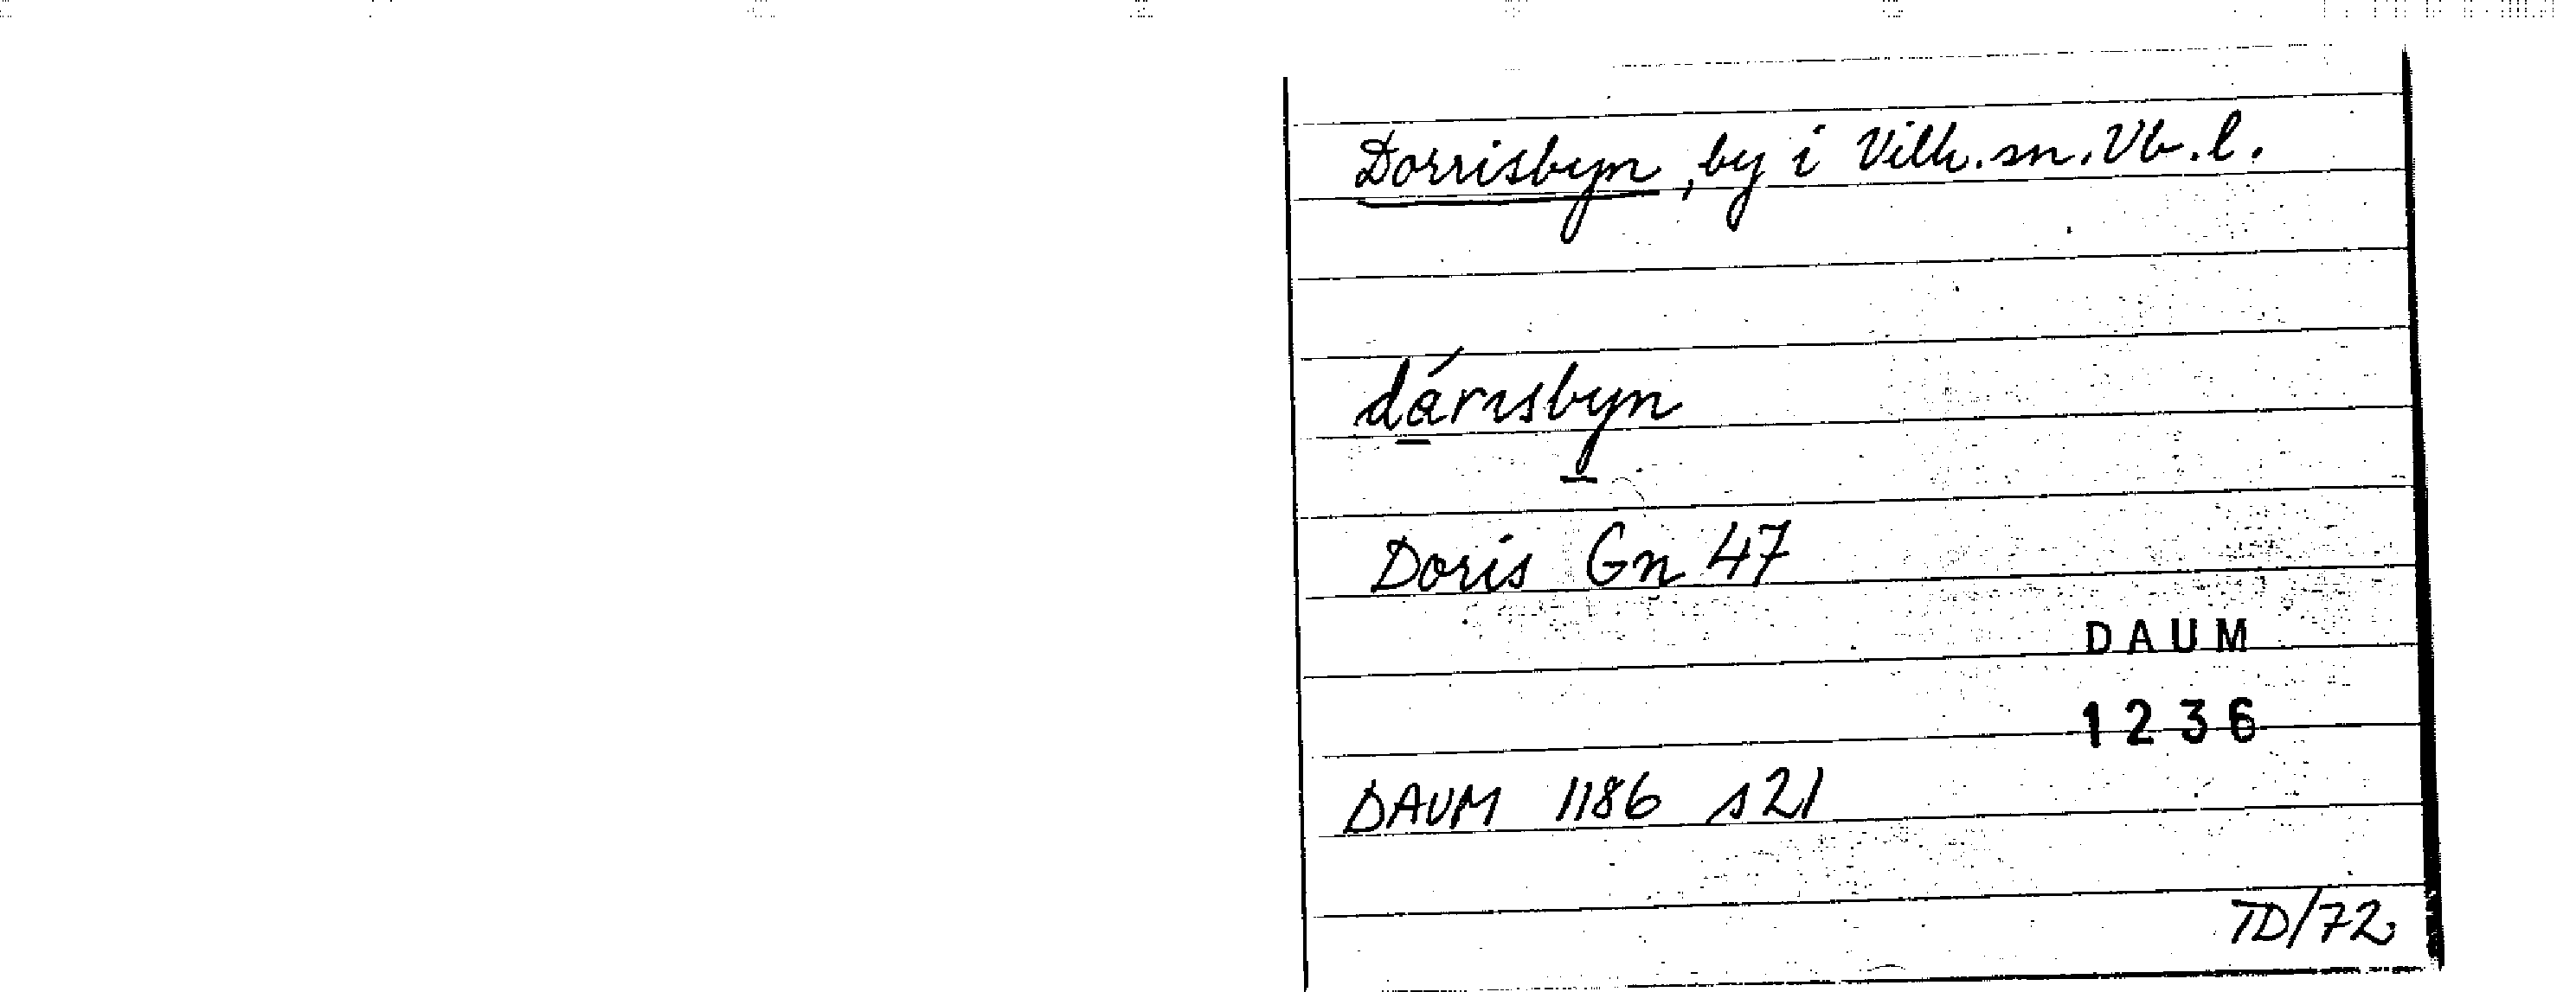 Dorrisbyn, by i Vilh. sn. Vb. l.
dárısbyn
Doris Gn 47
DAUM
1236
DAUM 1186 s21
TD/72